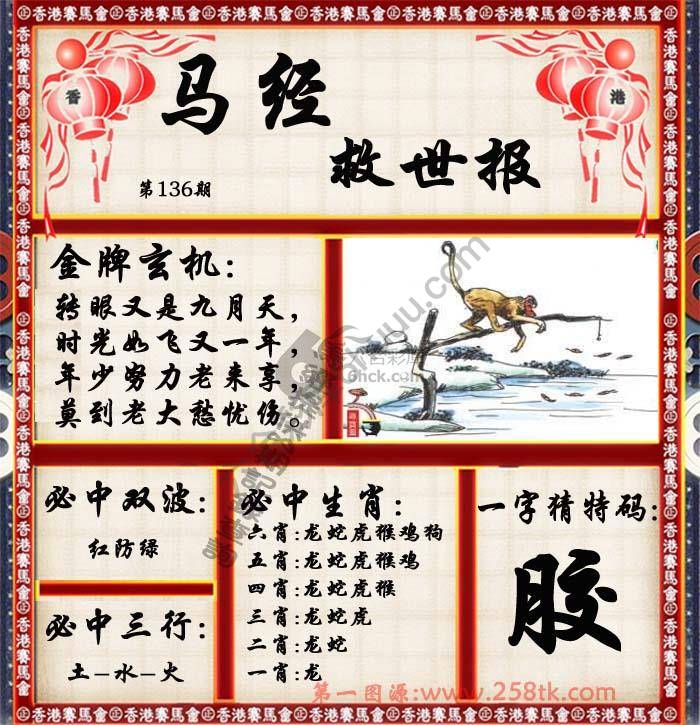 香港賽馬會
香 港
马经
救世报
第136期
金牌玄机:
转眼又是九月天，
时光如飞又一年，
年少努力老来享，
莫到老大愁忧伤。
必中双波:
红防绿
必中三行:
土-水-火
必中生肖:
六肖:龙蛇虎猴鸡狗
五肖:龙蛇虎猴鸡
四肖:龙蛇虎猴
三肖:龙蛇虎
二肖:龙蛇
一肖:龙
一字猜特码:
胶
第一图源:www.258tk.com